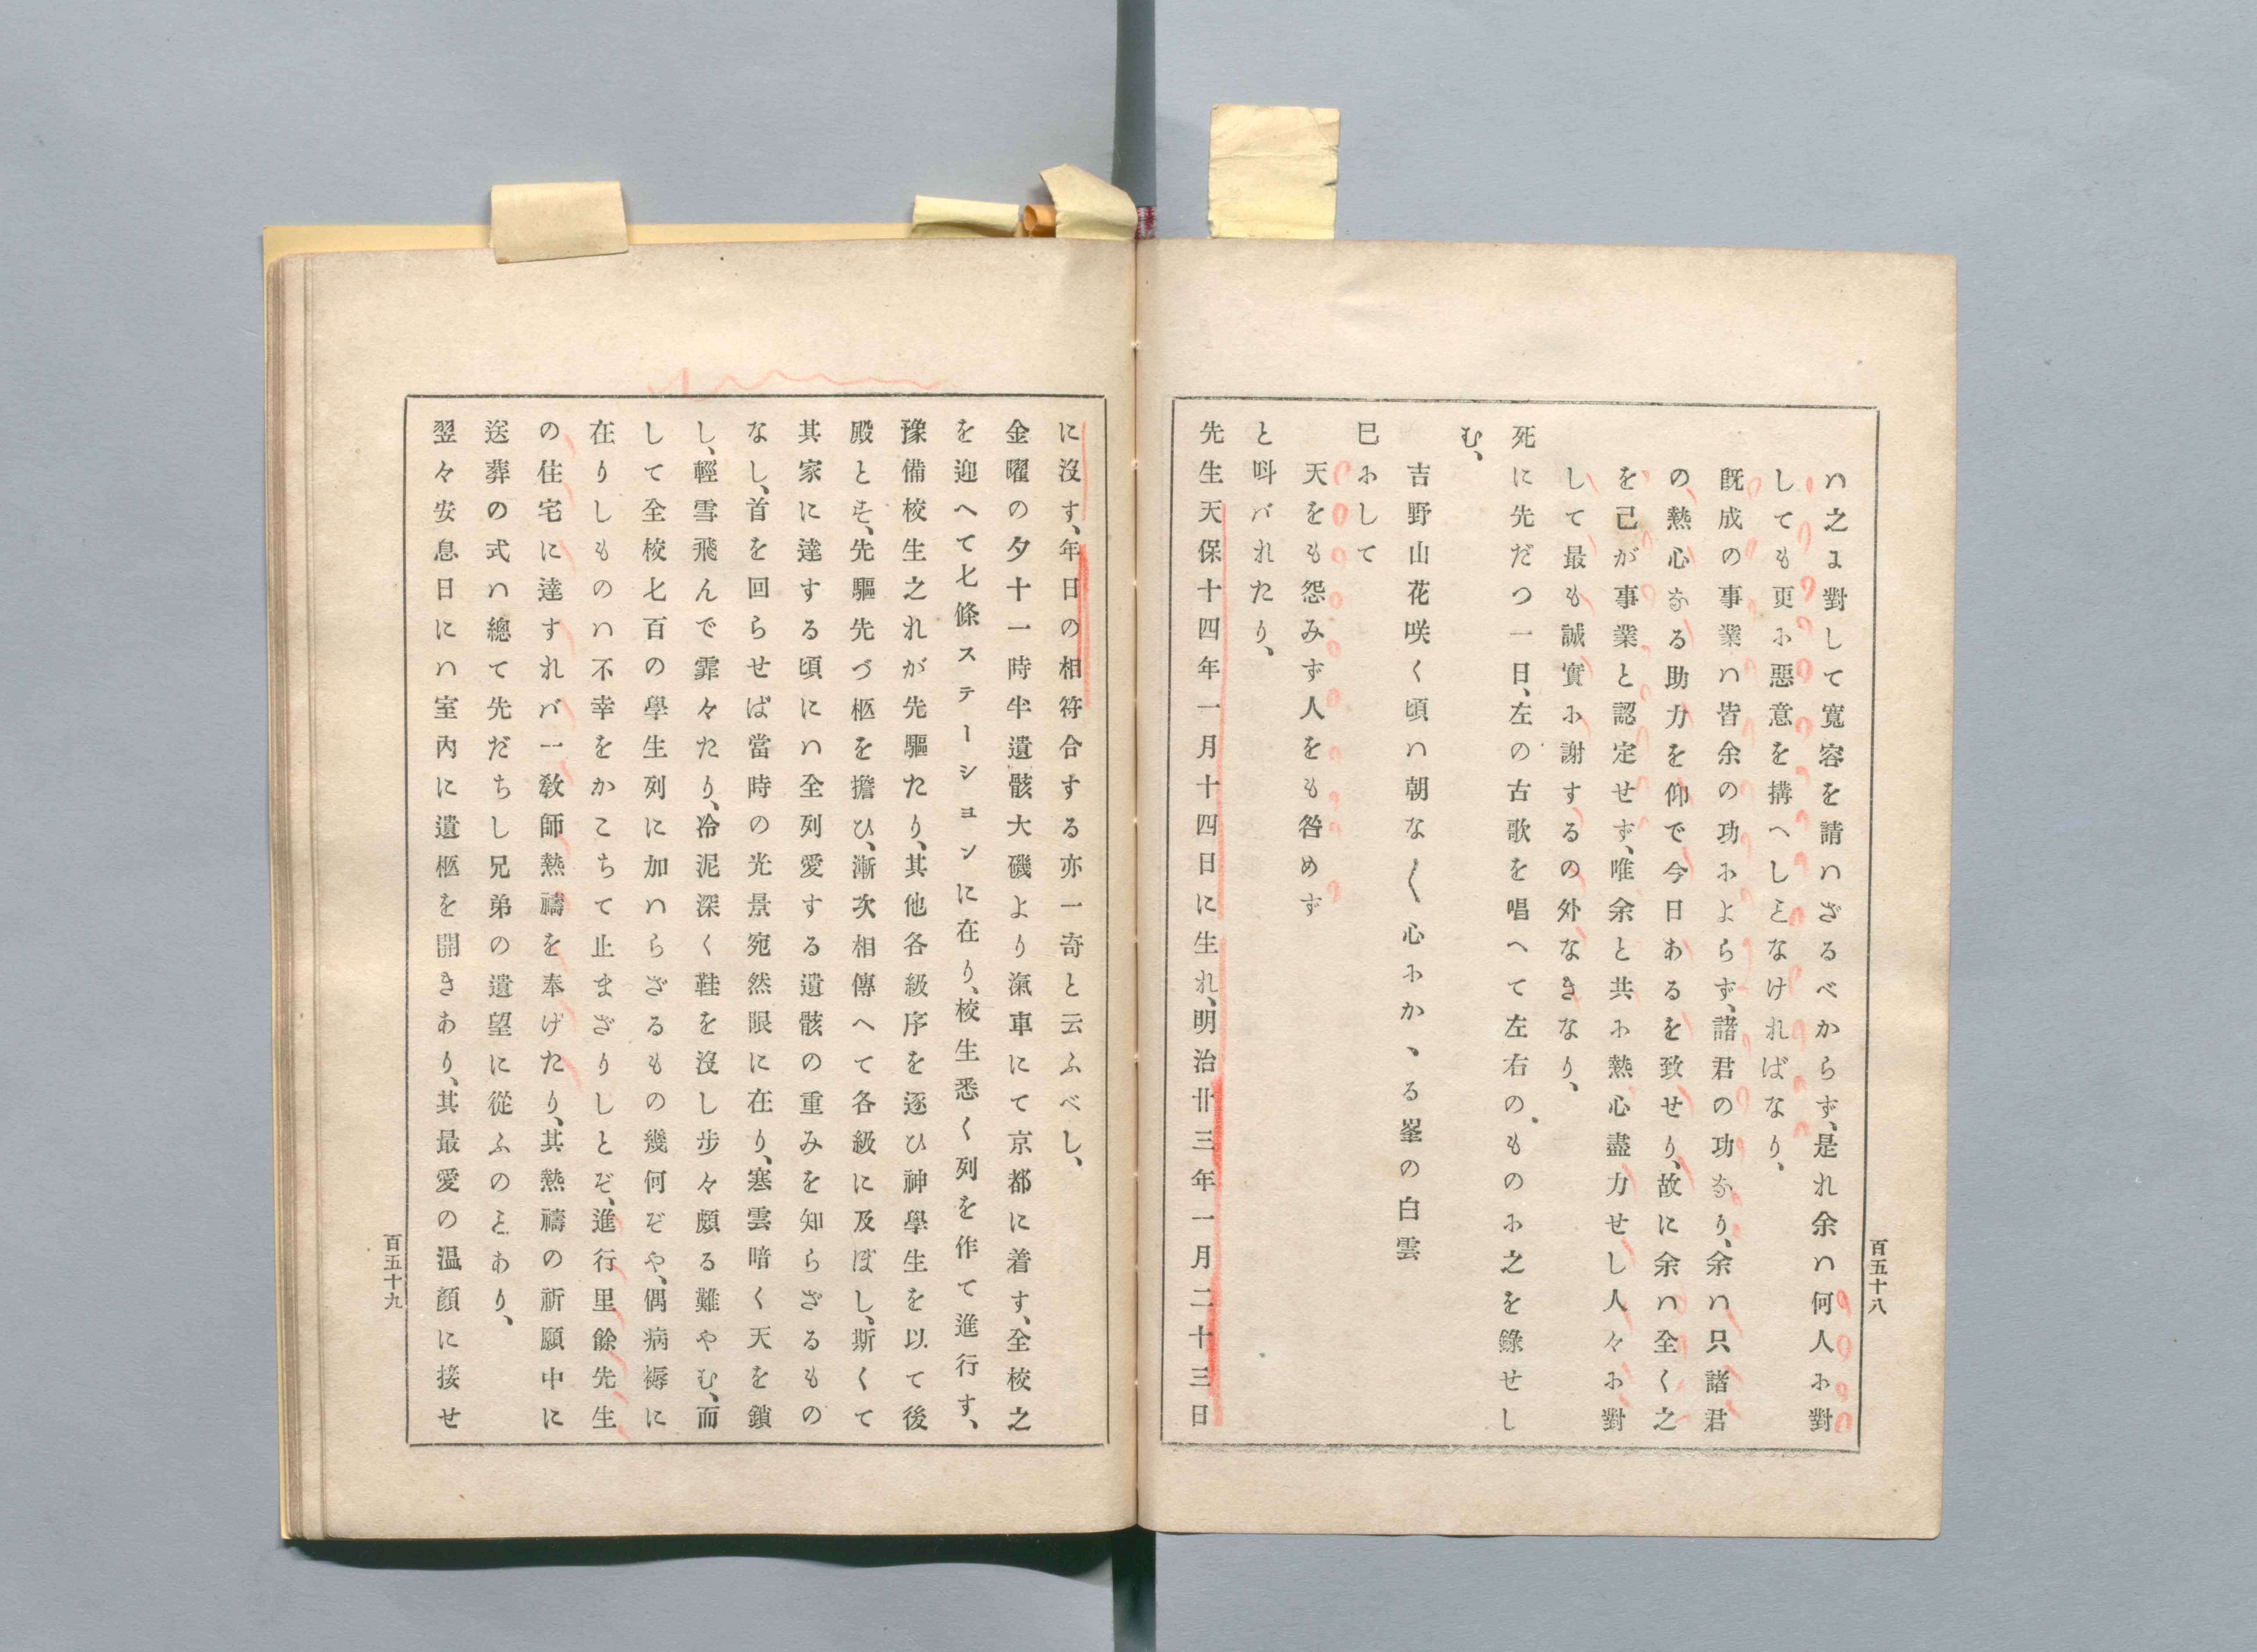 百五十八
ハ之ま對して寬容を請ハざるべからず、是れ余ハ何人に對
しても更に惡意を搆へしヿなければなり、
既成の事業ハ皆余の功によらず、諸君の功なり、余ハ只諸君
の熱心なる助力を仰で今日あるを致せり、故に余ハ全く之
を己が事業と認定せず、唯余と共に熱心盡力せし人々に對
して最も誠實に謝するの外なきなり、
死に先だつ一日、左の古歌を唱へて左右のものに之を錄せし
む、
吉野山花咲く頃ハ朝な〱心にかゝる峯の白雲
巳にして
天をも怨みず人をも咎めず
と呌バれたり、
先生天保十四年一月十四日に生れ、明治廿三年一月二十三日
に沒す、年日の相符合する亦一奇と云ふべし、
金曜の夕十一時半遺骸大磯より滊車にて京都に着す、全校之
を迎へて七條ステーションに在り、校生悉く列を作て進行す、
豫備校生之れが先驅たり、其他各級序を逐ひ神學生を以て後
殿とす、先驅先づ柩を擔ひ、漸次相傳へて各級に及ぼし、斯くて
其家に達する頃にハ全列愛する遺骸の重みを知らざるもの
なし、首を回らせば當時の光景宛然眼に在り、寒雲暗く天を鎖
し、輕雪飛んで霏々たり、冷泥深く鞋を沒し步々頗る難やむ、而
して全校七百の學生列に加ハらざるもの幾何ぞや、偶病褥に
在りしものハ不幸をかこちて止まざりしとぞ、進行里餘先生
の住宅に達すれバ一敎師熱禱を奉げたり、其熱禱の祈願中に
送葬の式ハ總て先だちし兄弟の遺望に從ふのヿあり、
翌々安息日にハ室內に遺柩を開きあり、其最愛の温顔に接せ
百五十九